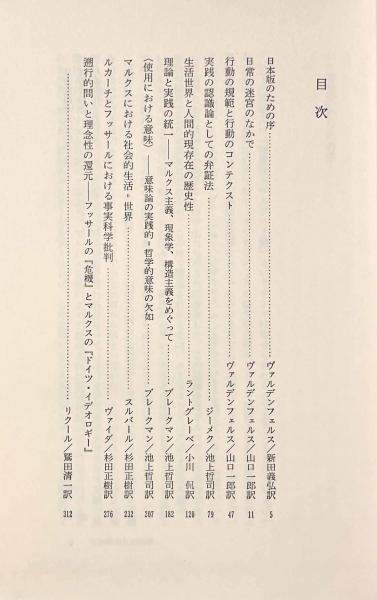 目次
日本版のための序……………ヴァルデンフェルス／新田義弘訳 5
日常の迷宮のなかで……………ヴァルデンフェルス／山口一郎訳 11
行動の規範と行動のコンテクスト……………ヴァルデンフェルス／山口一郎訳 47
実践の認識論としての弁証法……………ジーメク／池上哲司訳 79
生活世界と人間的現存在の歴史性……………ラントグレーベ／小川 侃訳 120
理論と実践の統一——マルクス主義、現象学、構造主義をめぐって……………ブレークマン／池上哲司訳 182
〈使用における意味〉——意味論の実践的＝哲学的意味の欠如……………ブレークマン／池上哲司訳 207
マルクスにおける社会的生活＝世界……………スルバール／杉田正樹訳 232
ルカーチとフッサールにおける事実科学批判……………ヴァイダ／杉田正樹訳 276
遡行的問いと理念性の還元——フッサールの『危機』とマルクスの『ドイツ・イデオロギー』
……………リクール／鷲田清一訳 312